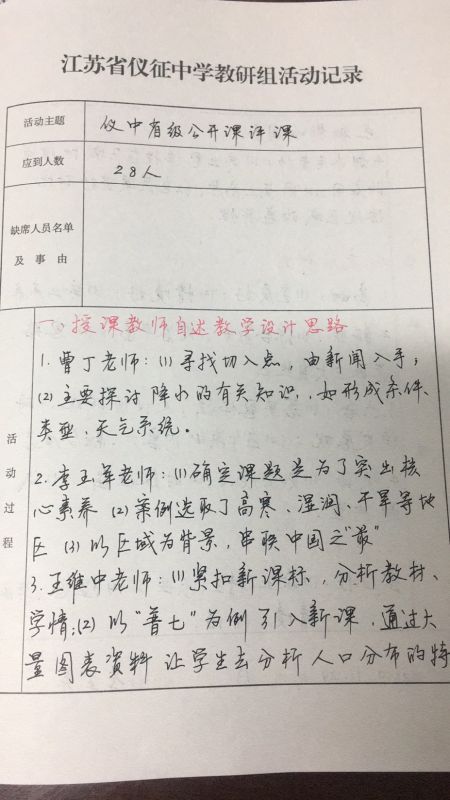 江苏省仪征中学教研组活动记录
活动主题 仪中省级公开课评课
应到人数 28人
缺席人员名单
及事由
活动过程
一、授课教师自述教学设计思路
1. 曹丁老师：(1) 寻找切入点，由新闻入手；
(2) 主要探讨降水的有关知识，如形成条件、
类型、天气系统。
2. 李玉军老师：(1) 确定课题是为了突出核
心素养 (2) 案例选取了高寒、湿润、干旱等地
区 (3) 以区域为背景，串联中国之“最”
3. 王维中老师：(1) 紧扣新课标，分析教材、
学情；(2) 以“普七”为例引入新课，通过大
量图表资料让学生去分析人口分布的特